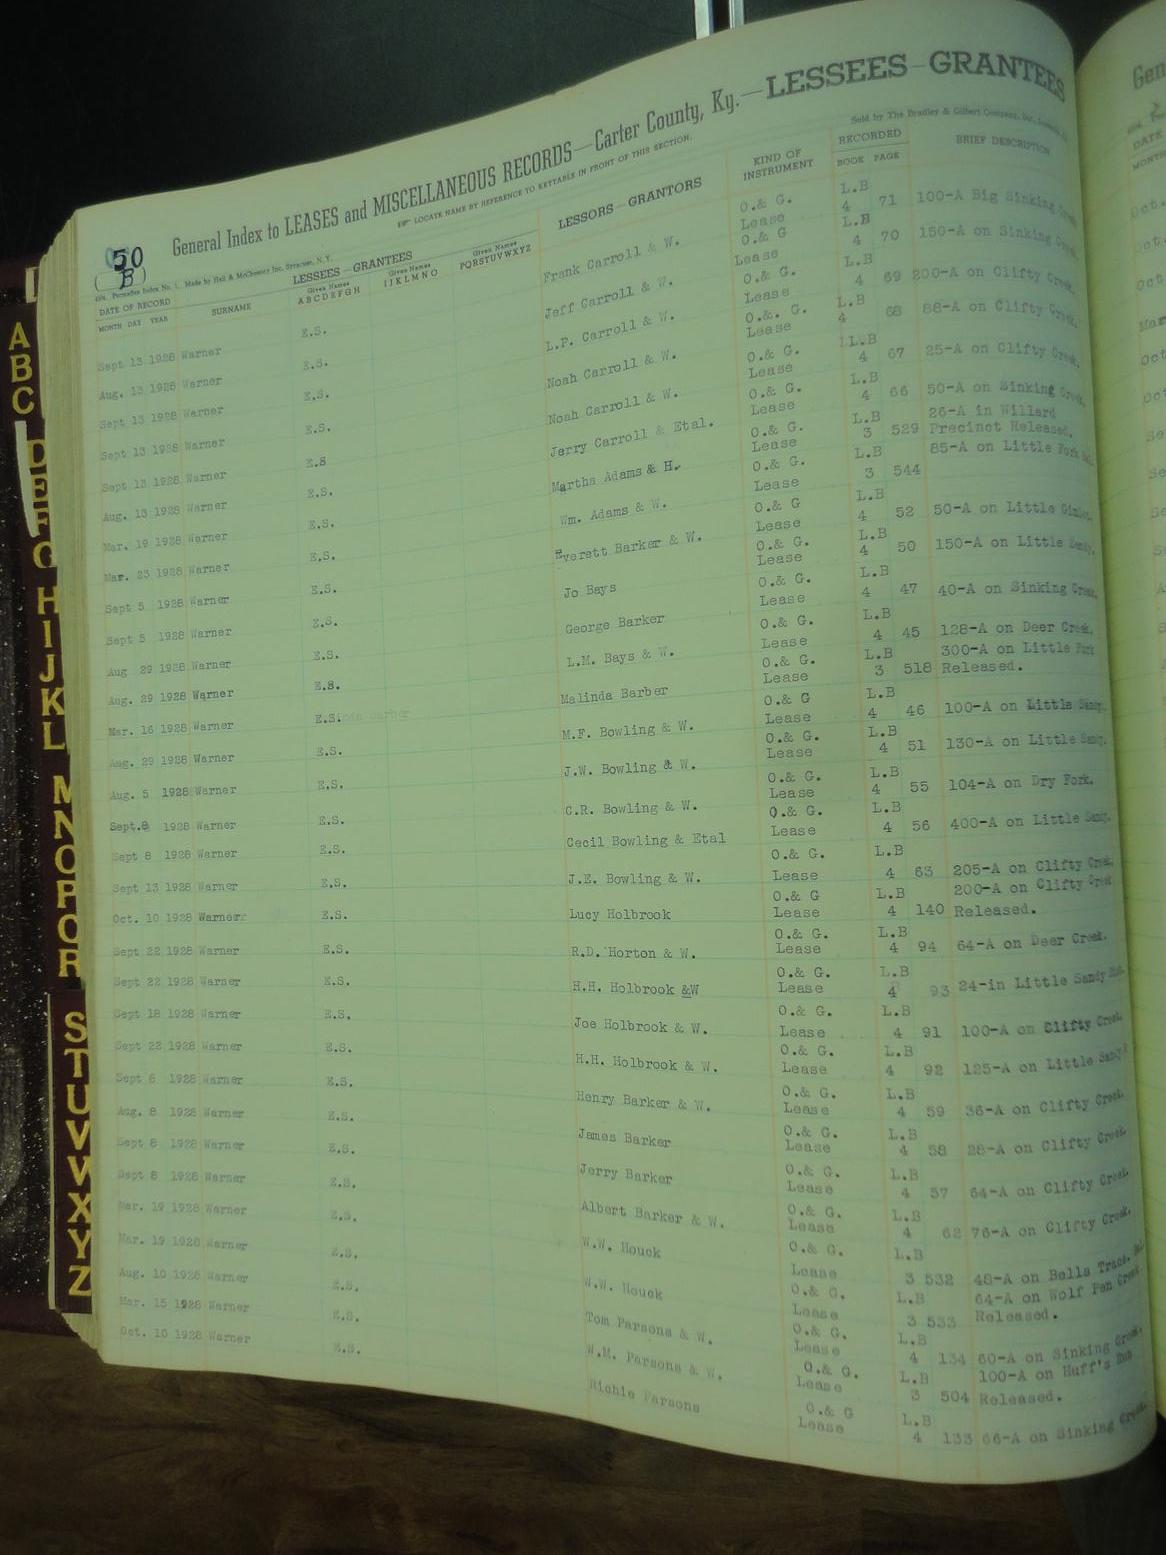 50
B
General Index to LEASES and MISCELLANEOUS RECORDS—Carter County, Ky.—LESSEES—GRANTEES
LOCATE NAME BY REFERENCE TO KEYTABLE IN FRONT OF THIS SECTION.
Made by Hall & McChesney Inc. Syracuse, N. Y.
Sold by The Bradley & Gilbert Company, Inc.
DATE OF RECORD SURNAME LESSEES—GRANTEES LESSORS—GRANTORS KIND OF INSTRUMENT RECORDED BRIEF DESCRIPTION
MONTH DAY YEAR Given Names ABCDEFGH Given Names IJKLMNO Given Names PQRSTUVWXYZ BOOK PAGE
Sept 13 1928 Warner E.S. Frank Carroll & W. O.& G. Lease L.B 4 71 100-A Big Sinking
Aug. 13 1928 Warner E.S. Jeff Carroll & W. O.& G Lease L.B 4 70 150-A on Sinking
Sept 13 1928 Warner E.S. L.F. Carroll & W. O.& G. Lease L.B 4 69 200-A on Clifty Creek.
Sept 13 1928 Warner E.S. Noah Carroll & W. O.&. G. Lease L.B 4 68 88-A on Clifty Creek.
Sept 13 1928 Warner E.S Noah Carroll & W. O.& G. Lease L.B 4 67 25-A on Clifty Creek.
Aug. 13 1928 Warner E.S. Jerry Carroll & Etal. O.& G. Lease L.B 4 66 50-A on Sinking Creek.
Mar. 19 1928 Warner E.S. Martha Adams & H. O.& G. Lease L.B 3 529 26-A in Willard Precinct Released.
Mar. 23 1928 Warner E.S. Wm. Adams & W. O.& G. Lease L.B 3 544 85-A on Little Fork
Sept 5 1928 Warner E.S. Everett Barker & W. O.& G Lease L.B 4 52 50-A on Little
Sept 5 1928 Warner E.S. Jo Bays O.& G. Lease L.B 4 50 150-A on Little Sandy.
Aug 29 1928 Warner E.S. George Barker O.& G. Lease L.B 4 47 40-A on Sinking Creek.
Aug. 29 1928 Warner E.S. L.M. Bays & W. O.& G. Lease L.B 4 45 128-A on Deer Creek.
Mar. 16 1928 Warner E.S. Malinda Barber O.& G. Lease L.B 3 518 300-A on Little Fork Released.
Aug. 29 1928 Warner E.S. M.F. Bowling & W. O.& G Lease L.B 4 46 100-A on Little Sandy.
Aug. 5 1928 Warner E.S. J.W. Bowling & W. O.& G. Lease L.B 4 51 130-A on Little Sandy.
Sept.8 1928 Warner E.S. C.R. Bowling & W. O.& G. Lease L.B 4 55 104-A on Dry Fork.
Sept 8 1928 Warner E.S. Cecil Bowling & Etal O.& G. Lease L.B 4 56 400-A on Little Sandy.
Sept 13 1928 Warner E.S. J.E. Bowling & W. O.& G. Lease L.B 4 63 205-A on Clifty Creek.
Oct. 10 1928 Warner E.S. Lucy Holbrook O.& G Lease L.B 4 140 200-A on Clifty Creek Released.
Sept 22 1928 Warner E.S. R.D. Horton & W. O.& G. Lease L.B 4 94 64-A on Deer Creek.
Sept 22 1928 Warner E.S. H.H. Holbrook &W O.& G. Lease L.B 4 93 24-in Little Sandy
Sept 18 1928 Warner E.S. Joe Holbrook & W. O.& G. Lease L.B 4 91 100-A on Clifty Creek.
Sept 22 1928 Warner E.S. H.H. Holbrook & W. O.& G. Lease L.B 4 92 125-A on Little Sandy
Sept 6 1928 Warner E.S. Henry Barker & W. O.& G. Lease L.B 4 59 36-A on Clifty Creek.
Aug. 8 1928 Warner E.S. James Barker O.& G. Lease L.B 4 58 28-A on Clifty Creek.
Sept 8 1928 Warner E.S. Jerry Barker O.& G. Lease L.B 4 57 64-A on Clifty Creek.
Sept 8 1928 Warner E.S. Albert Barker & W. O.& G. Lease L.B 4 62 76-A on Clifty Creek.
Mar. 19 1928 Warner E.S. W.W. Houck O.& G. Lease L.B 3 532 48-A on Bells Trace.
Mar. 19 1928 Warner E.S. W.W. Houck O.& G. Lease L.B 3 533 64-A on Wolf Pen Creek Released.
Aug. 10 1928 Warner E.S. Tom Parsons & W. O.& G. Lease L.B 4 134 60-A on Sinking Creek.
Mar. 15 1928 Warner E.S. W.M. Parsons & W. O.& G. Lease L.B 3 504 100-A on Huff's Run Released.
Oct. 10 1928 Warner E.S. Richie Parsons O.& G Lease L.B 4 133 66-A on Sinking Creek.
A
B
C
D
E
F
G
H
I
J
K
L
M
N
O
P
Q
R
S
T
U
V
W
X
Y
Z